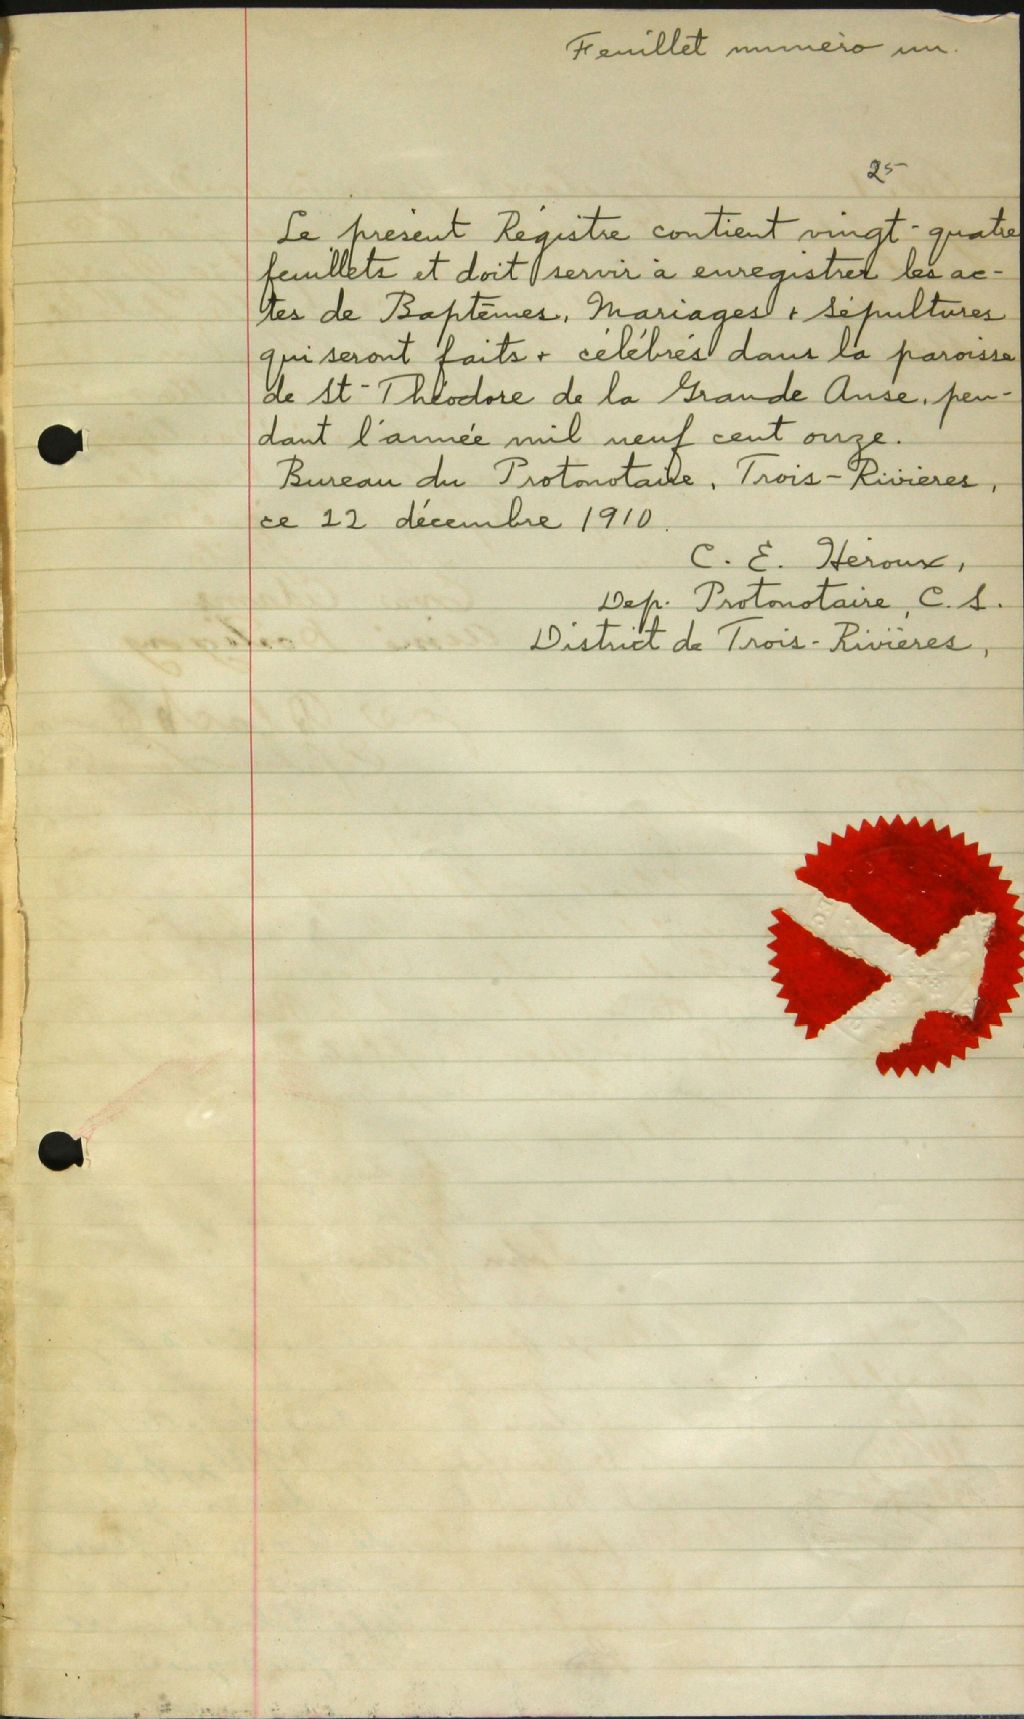 Feuillet numéro un.
25
Le présent Régistre contient vingt-quatre
feuillets et doit servir à enregistrer les ac-
tes de Baptêmes, Mariages & sépultures
qui seront faits & célébrés dans la paroisse
de St-Théodore de la Grande Anse, pen-
dant l'année mil neuf cent onze.
Bureau du Protonotaire, Trois-Rivières,
ce 22 décembre 1910.
C. E. Héroux,
Dep. Protonotaire, C. S.
District de Trois-Rivières,